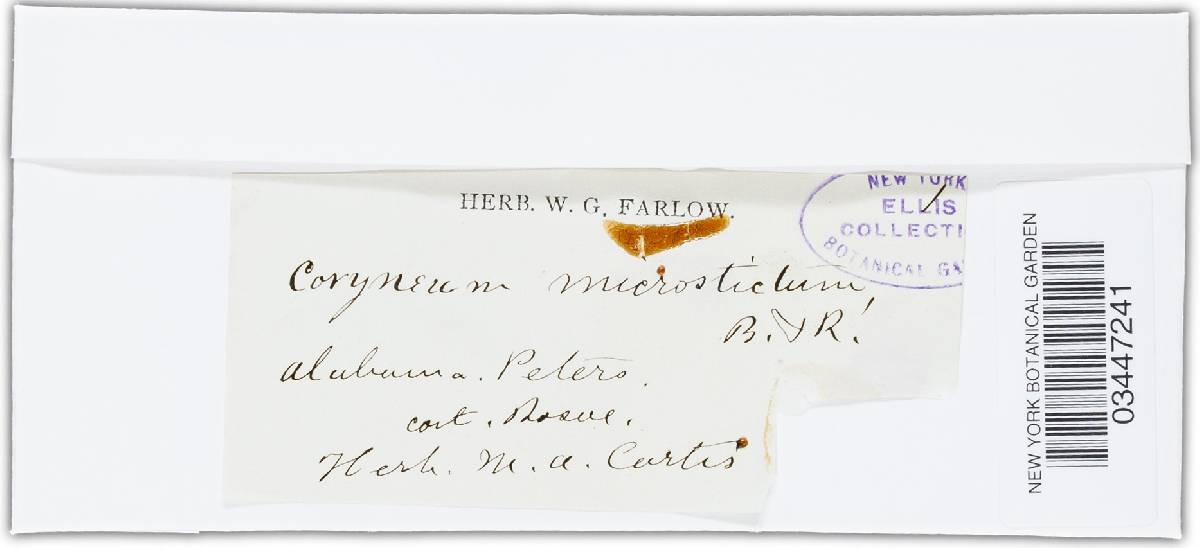 HERB. W. G. FARLOW.
NEW YORK
ELLIS
COLLECTI
BOTANICAL GA
Coryneum microstictum,
B. & R.!
Alabama. Peters.
cort. Rosae.
Herb. M. A. Curtis
NEW YORK BOTANICAL GARDEN
03447241